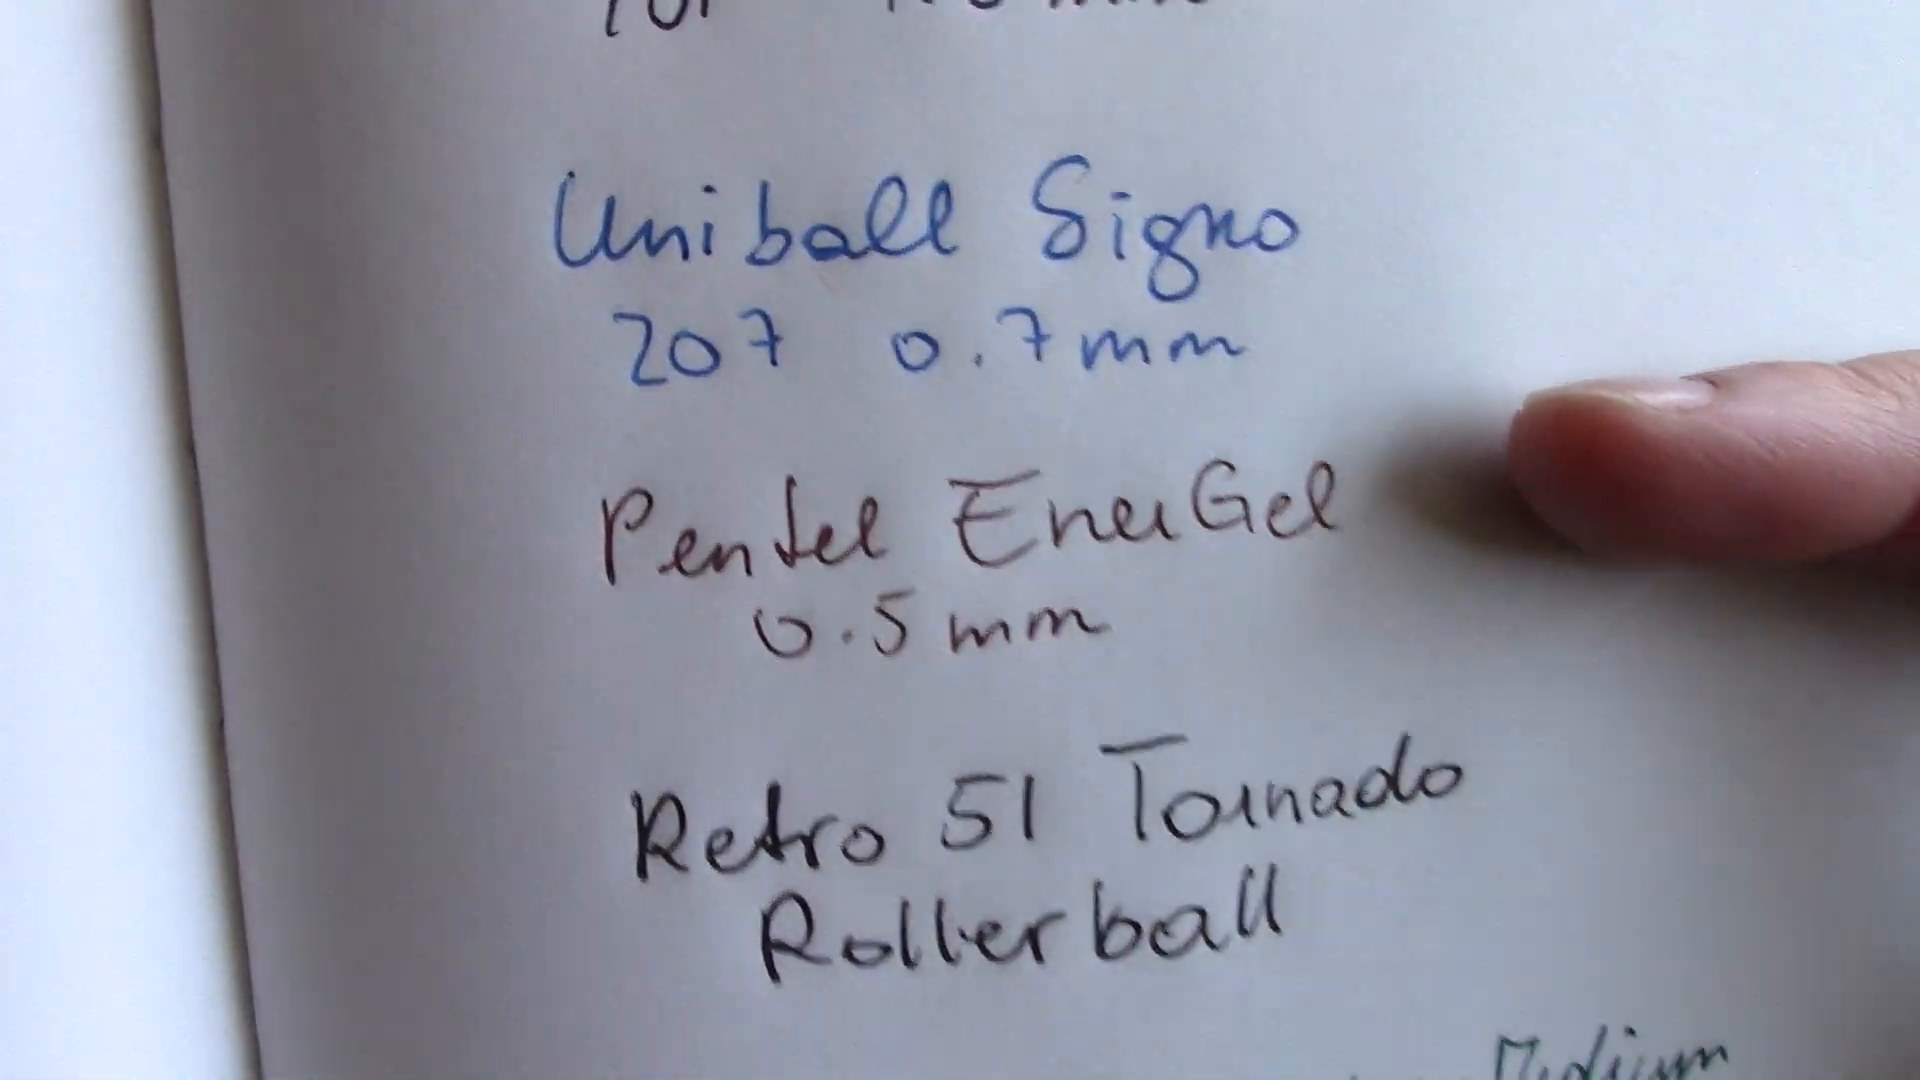 Uniball Signo
207 0.7mm
Pentel EnerGel
0.5mm
Retro 51 Tornado
Rollerball
Medium